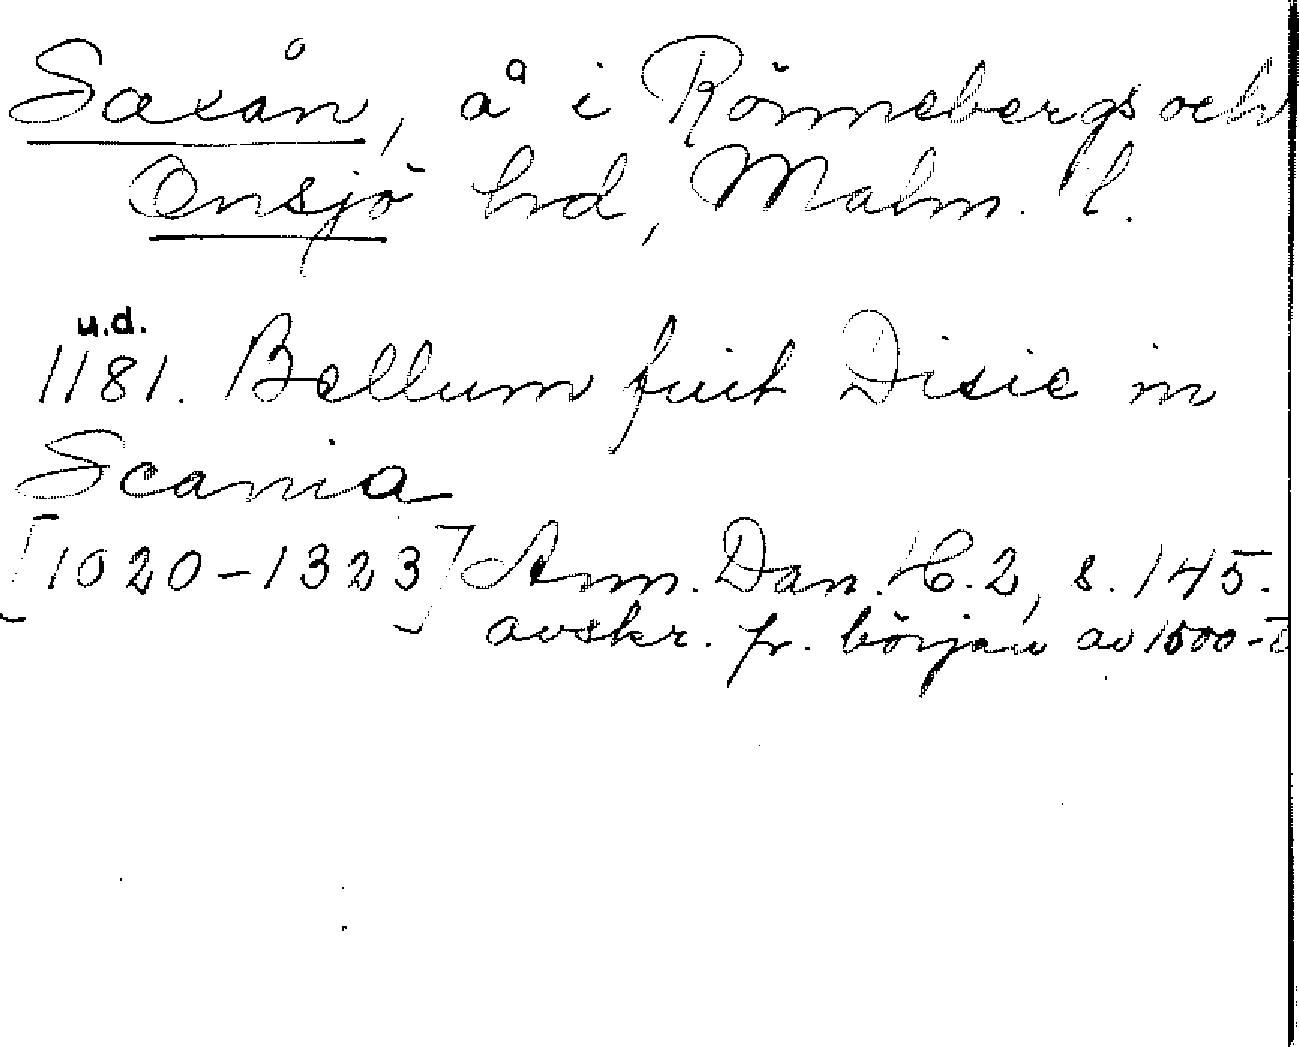 Saxån, å i Rönnebergs och
Onsjö hrd, Malm. l.
u.d.
1181. Bellum fuit Disie in
Scania
[1020-1323] Ann. Dan. H. 2, s. 145.
avskr. fr. början av 1500-t